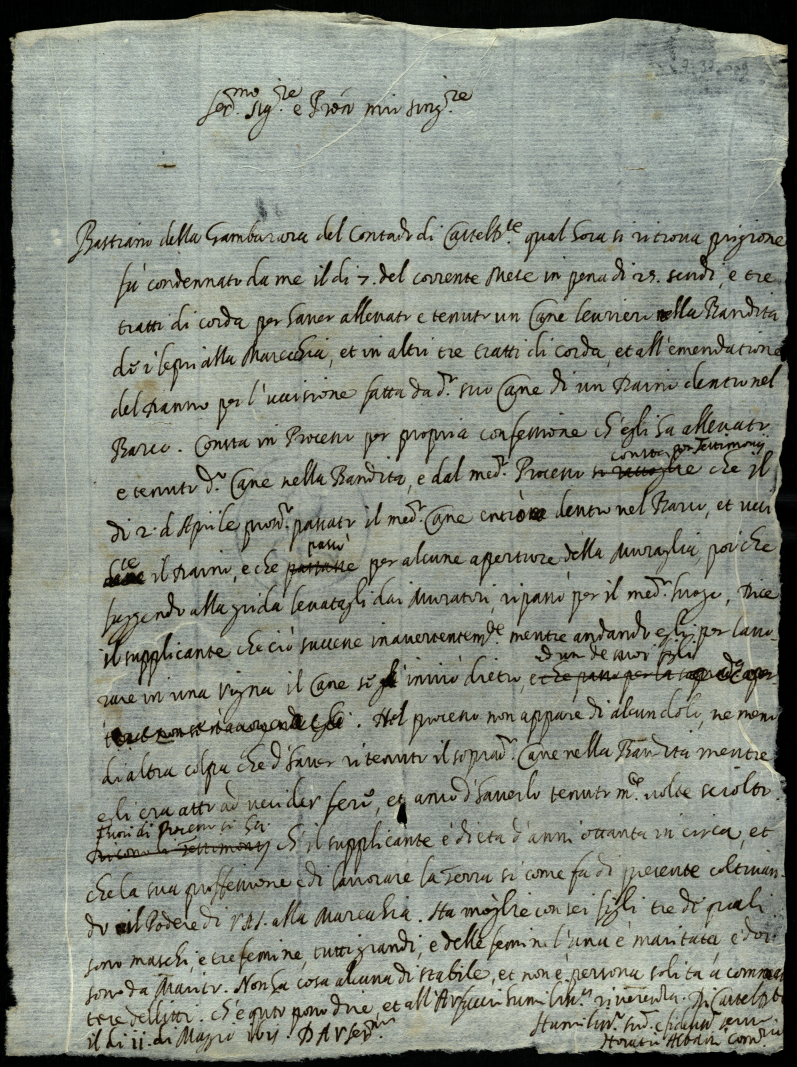 Ser.mo Sig.re e Pron mio sing.re
Bastiano della Gambarara del Contado di Casteld.te qual hora si ritrova prigione
fù condennato da me il dì 7. del corrente Mese in pena di 25. scudi, e tre
tratti di corda per haver allevato e tenuto un Cane levriero nella Bandita
de i lepri alla Marecchia, et in altri tre tratti di corda, et all'emendatione
del Danno per l'uccisione fatta da d.o suo Cane di un Daino dentro nel
Barco. Consta in Processo per propria confessione ch'egli ha allevato
e tenuto d.o Cane nella Bandita, e dal med.o Processo consta per Testimonij che il
dì 2. d'Aprile pross.o passato il med.o Cane entrò dentro nel Barco, et ucci
se il Daino, e che passò per alcune aperture della Muraglia, poi che
fuggendo alla grida levatagli dai Muratori, ripassò per il med.o luogo, Dice
il supplicante che ciò successe inavertentem.te mentre andando egli per lavo-
rare in una vigna il Cane se gl'inviò dietro, ed un de suoi figli
. Nel processo non appare di alcun dolo, ne meno
di altra colpa che d'haver ritenuto il soprad.o Cane nella Bandita mentre
egli era atto ad uccider fere, et anco d'haverlo tenuto m.te volte sciolto.
Fuori di Processo si hà ch'il supplicante è di età d'anni ottanta in circa, et
che la sua professione è di lavorare la Terra si come fa di presente coltivan-
do il Podere di V.A.S. alla Marecchia. Ha moglie con sei figli tre de quali
sono maschi, e tre femine, tutti grandi, e delle femine l'una è maritata, e doi
sono da Marito. Non ha cosa alcuna di stabile, et non è persona solita à commet
tere delitti. ch'è quto posso dire, et all'A.V. facio humiliss.a riverenza. Di Casteld.te
il dì 11. di Maggio D.A.V.Ser.ma
Humiliss.o ser.re
Horatio Albani Com.rio